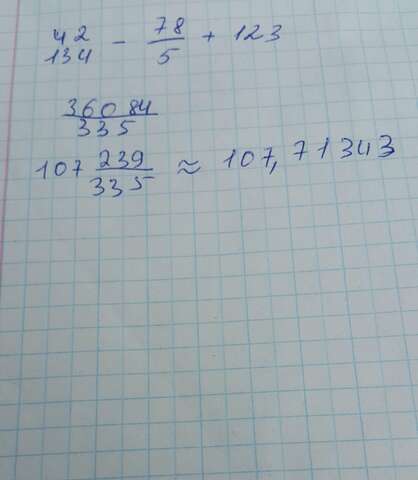 42/134 - 78/5 + 123
36084/335
107 239/335 ≈ 107,71343